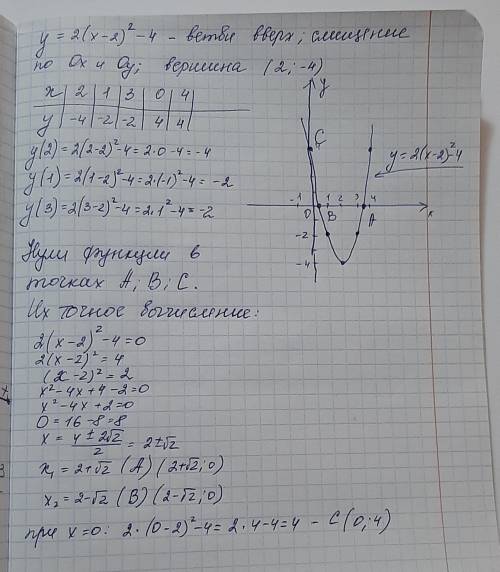 y = 2(x-2)² - 4 - ветви вверх; смещение
по Ox и Oy; вершина (2; -4)
x | 2 | 1 | 3 | 0 | 4
y | -4 | -2 | -2 | 4 | 4
y(2) = 2(2-2)² - 4 = 2·0 - 4 = -4
y(1) = 2(1-2)² - 4 = 2·(-1)² - 4 = -2
y(3) = 2(3-2)² - 4 = 2·1² - 4 = -2
y
C
y = 2(x-2)² - 4
-1 0 1 2 3 4 x
B A
-2
-4
Нули функции в
точках A; B; C.
Их точное вычисление:
2(x-2)² - 4 = 0
2(x-2)² = 4
(x-2)² = 2
x² - 4x + 4 - 2 = 0
x² - 4x + 2 = 0
D = 16 - 8 = 8
x = (4 ± 2√2)/2 = 2 ± √2
x₁ = 2+√2 (A) (2+√2; 0)
x₂ = 2-√2 (B) (2-√2; 0)
при x=0: 2·(0-2)² - 4 = 2·4 - 4 = 4 - C(0; 4)